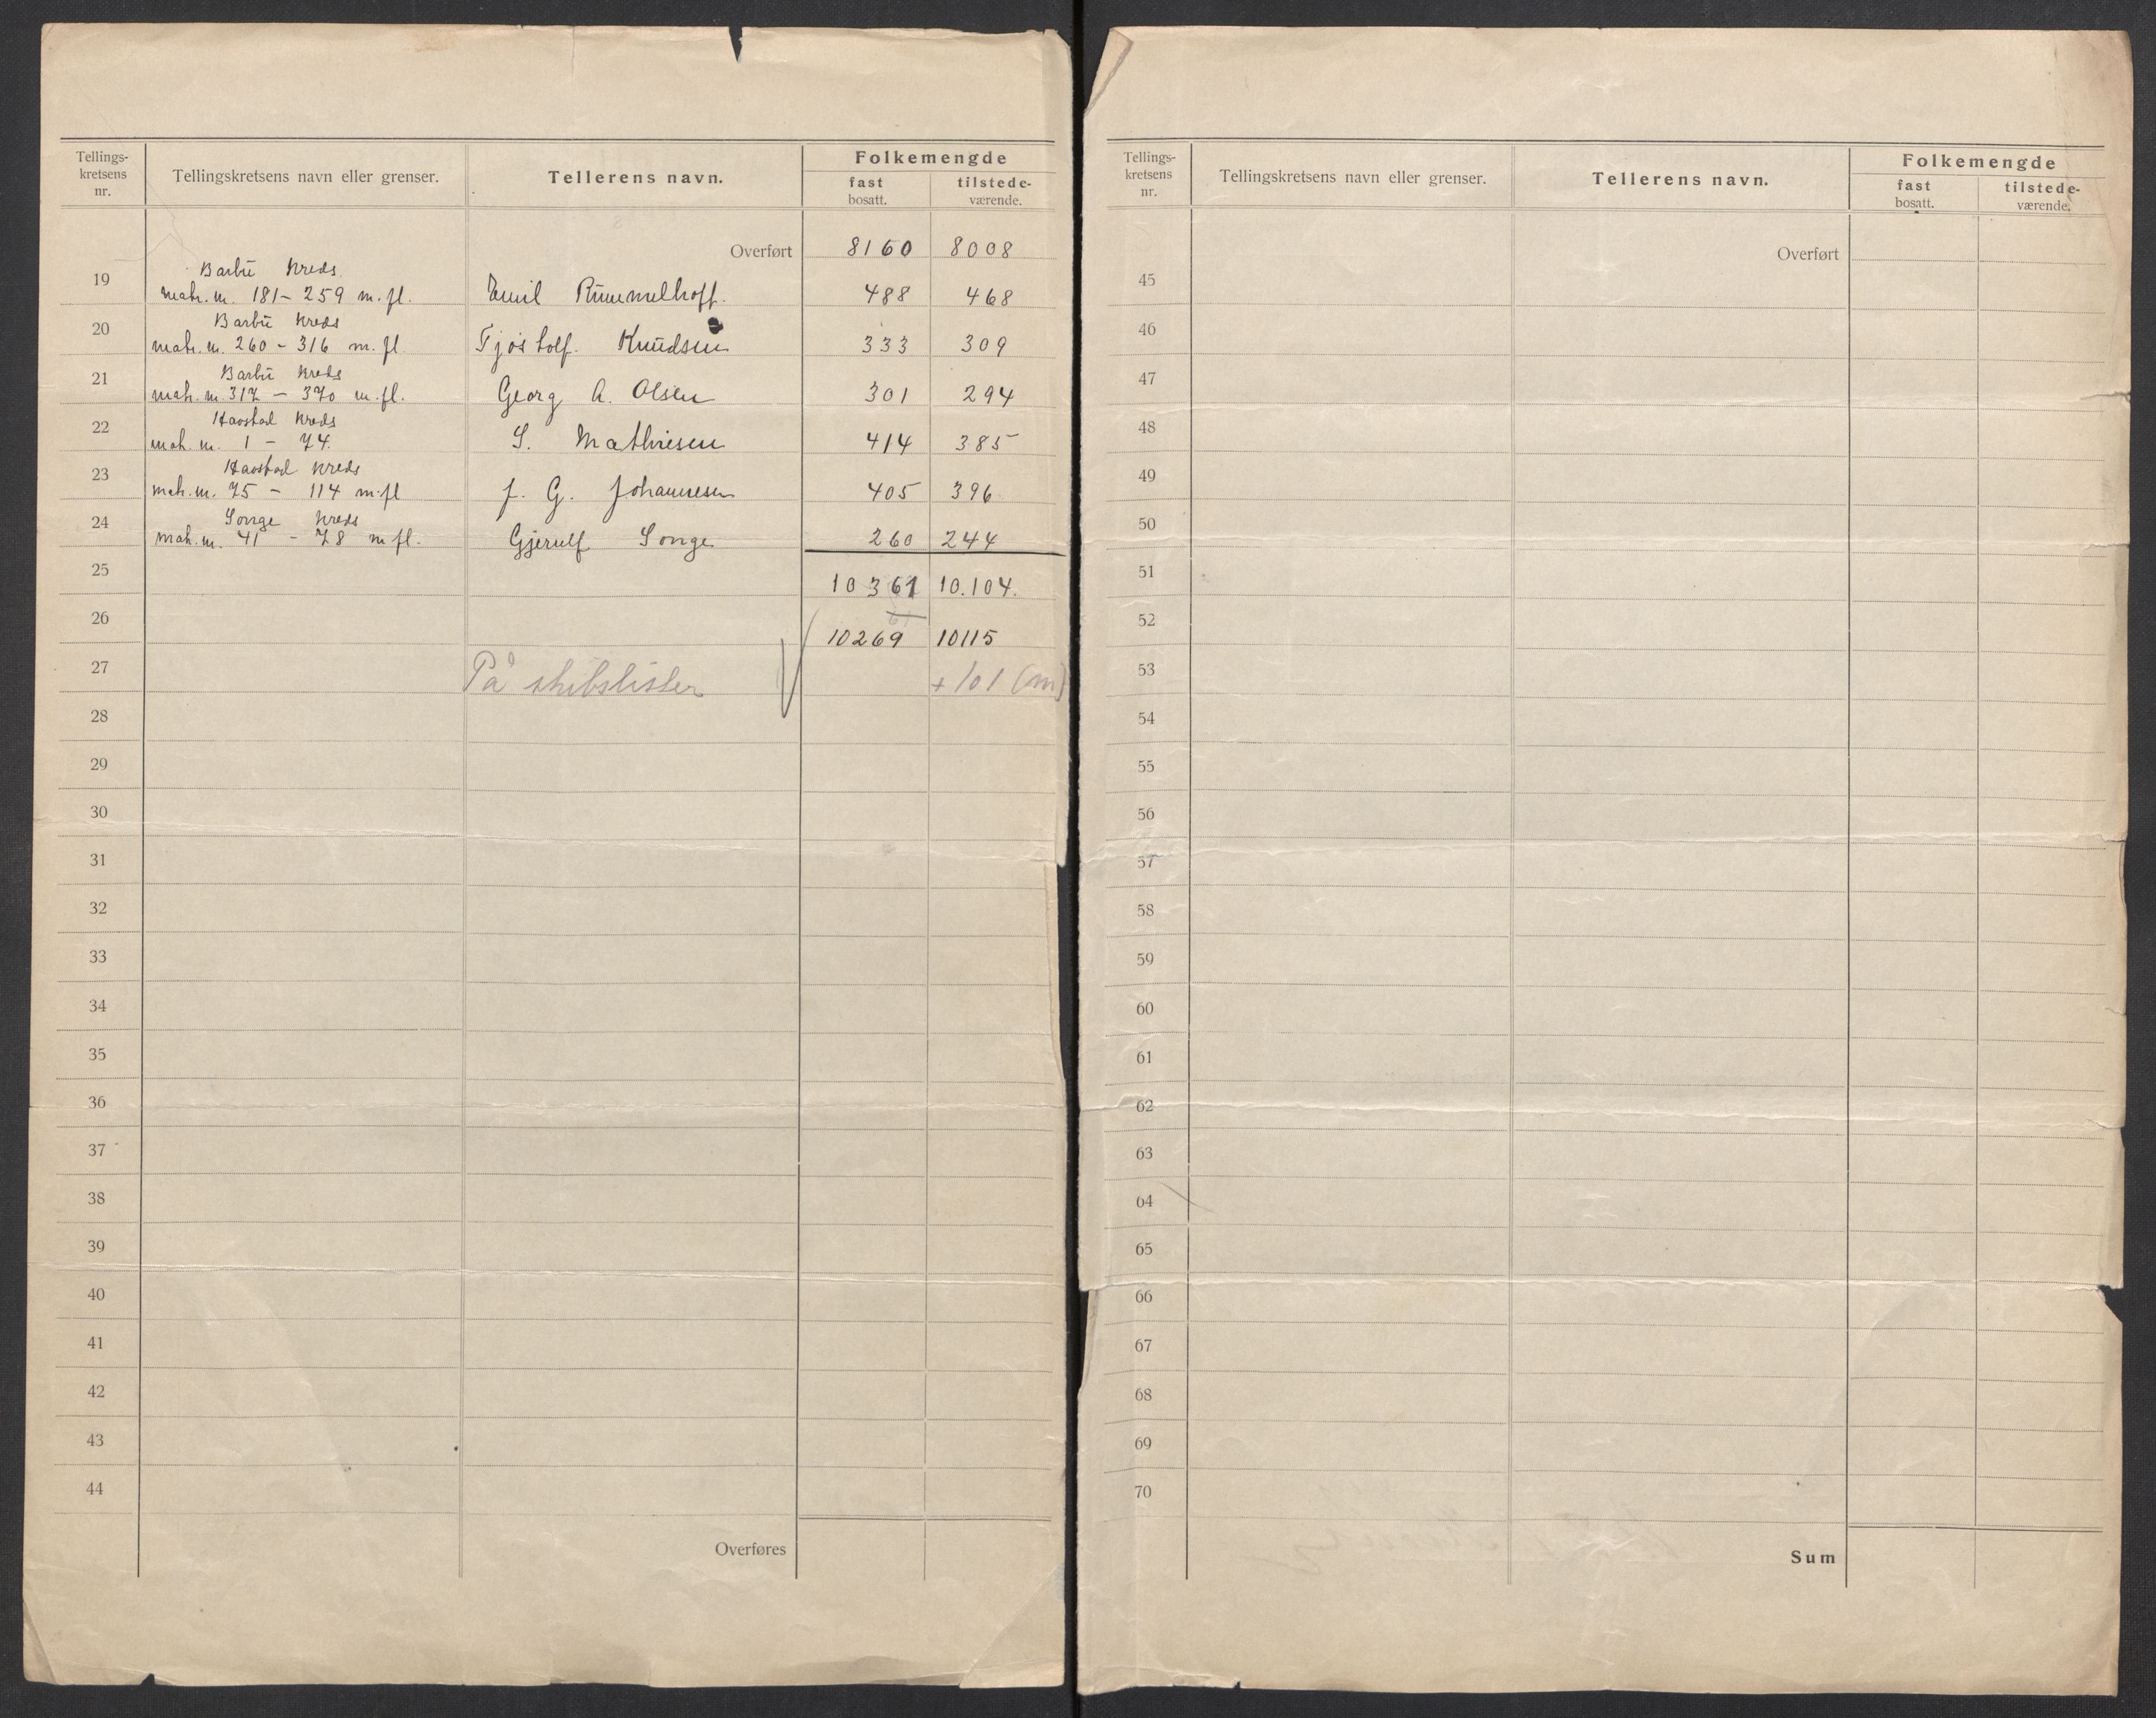 Tellings-
kretsens
nr.
Tellingskretsens navn eller grenser.
Tellerens navn.
Folkemengde
fast
bosatt.
tilstede-
værende.
Overført 8160 8008
Barbu Kreds
19 matr. nr. 181 - 259 m. fl. Emil Rummelhoff. 488 468
Barbu Kreds
20 matr. nr. 260 - 316 m. fl. Tjostolf. Knudsen 333 309
Barbu Kreds
21 matr. nr. 317 - 370 m. fl. Georg A. Olsen 301 294
Havstad Kreds
22 matr. nr. 1 - 74. S. Mathisen 414 385
Havstad Kreds
23 matr. nr. 75 - 114 m. fl J. G. Johannesen 405 396
Songe Kreds
24 matr. nr. 41 - 78 m fl. Gjerulf Songe 260 244
25 10361 10.104.
26 10269 10115
27 På skibslister + 101 (m)
28
29
30
31
32
33
34
35
36
37
38
39
40
41
42
43
44
Overføres
Tellings-
kretsens
nr.
Tellingskretsens navn eller grenser.
Tellerens navn.
Folkemengde
fast
bosatt.
tilstede-
værende.
Overført
45
46
47
48
49
50
51
52
53
54
55
56
57
58
59
60
61
62
63
64
65
66
67
68
69
70
Sum